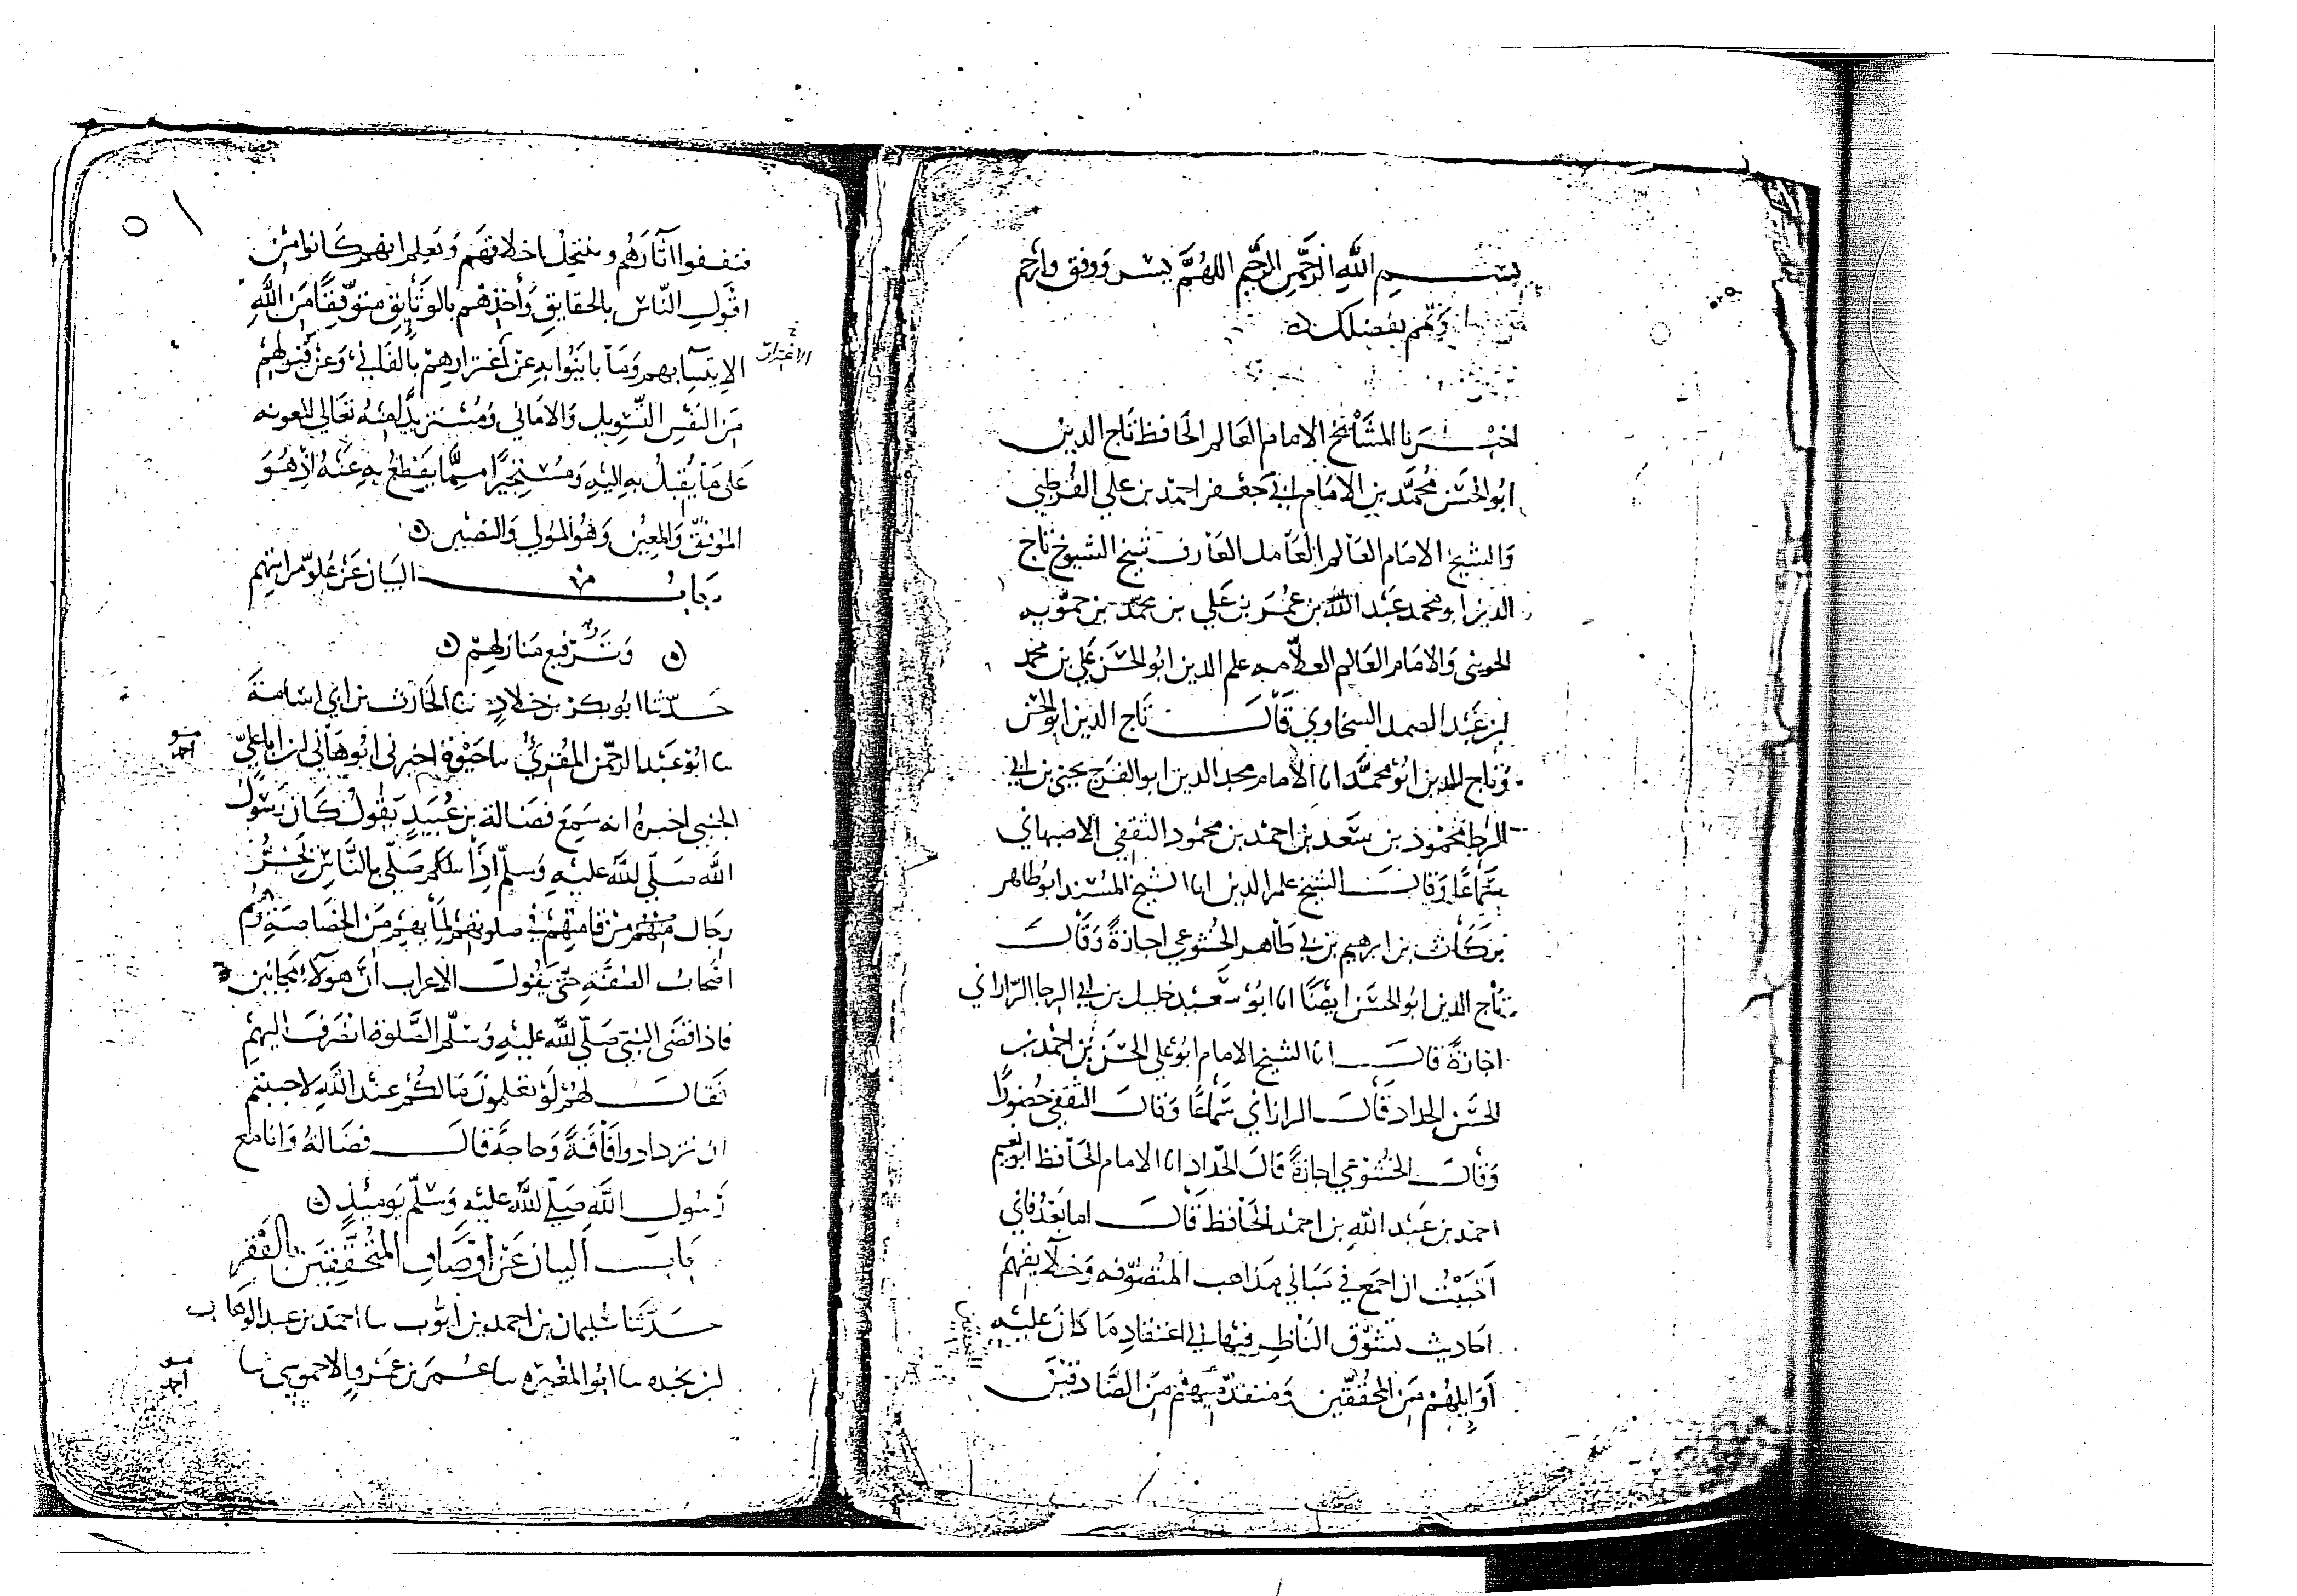 بسم الله الرحمن الرحيم اللهم يسر ووفق وارحم
وتمم بفضلك
اخبرنا المشائخ الامام العالم الحافظ تاج الدين
ابو الحسن محمد بن الامام ابي جعفر احمد بن علي القرطبي
والشيخ الامام العالم العامل العارف شيخ الشيوخ تاج
الدين ابو محمد عبد الله بن عمر بن علي بن محمد بن حمويه
الجويني والامام العالم العلامه علم الدين ابو الحسن علي بن محمد
بن عبد الصمد السخاوي قال تاج الدين ابو الحسن
وتاج الدين ابو محمد انا الامام مجد الدين ابو الفرج يحيى بن ابي
الرجا محمود بن سعد بن احمد بن محمود الثقفي الاصبهاني
سماعا وقال الشيخ علم الدين انا الشيخ المسند ابو طاهر
بركات بن ابرهيم بن طاهر الخشوعي اجازة وقال
تاج الدين ابو الحسن ايضا انا ابو سعيد خليل بن ابي الرجا الراراني
اجازة قال انا الشيخ الامام ابو علي الحسن بن احمد بن
الحسن الحداد قال الراراني سماعا وقال الثقفي حضورا
وقال الخشوعي اجازة قال الحداد انا الامام الحافظ ابو نعيم
احمد بن عبد الله بن احمد الحافظ قال اما بعد فاني
احببت ان اجمع في مذاهب المتصوفه وخلايقهم
احاديث تشوق الناظر فيها الى اعتقاد ما كان عليه
اوايلهم من المحققين ومتقدميهم من الصادقين
٥١
فتقفوا اثارهم وينتحل اخلاقهم وتعلم انهم كانوا من
اقول الناس بالحقايق واخذهم بالوثايق متوفقا من الله
الايتسا بهم وما باينوا به عن اغترارهم بالفاني وعن قبولهم
الاغترار
من النفس التسويل والاماني ومستزيدا منه تعالى لمعونه
على ما يقبل به اليه ومستجيرا مما يقطع به عنه اذ هو
الموفق والمعين وهو المولى والنصير
باب من البيان عن علو مراتبهم
وترفيع منازلهم
حدثنا ابو بكر بن خلاد ثنا الحارث بن ابي اسامة
ثنا ابو عبد الرحمن المقرئ ثنا حيوة اخبرني ابو هاني ان ابا علي
الجنبي اخبره انه سمع فضالة بن عبيد يقول كان رسول
الله صلى الله عليه وسلم اذا صلى بالناس تخر
رجال منهم من قامتهم في صلوتهم لما بهم من الخصاصة وهم
اصحاب الصفة حتى يقول الاعراب ان هولاء مجانين
فاذا قضى النبي صلى الله عليه وسلم الصلوة انصرف اليهم
فقال لهم لو تعلمون ما لكم عند الله لاحببتم
ان تزدادوا فاقة وحاجة قال فضالة وانا مع
رسول الله صلى الله عليه وسلم يومئذ
باب البيان عن اوصاف المتحققين بالفقر
حدثنا سليمان بن احمد بن ايوب ثنا احمد بن عبد الوهاب
بن نجده ثنا ابو المغيره ثنا عمر بن عمرو الاحموسي ثنا